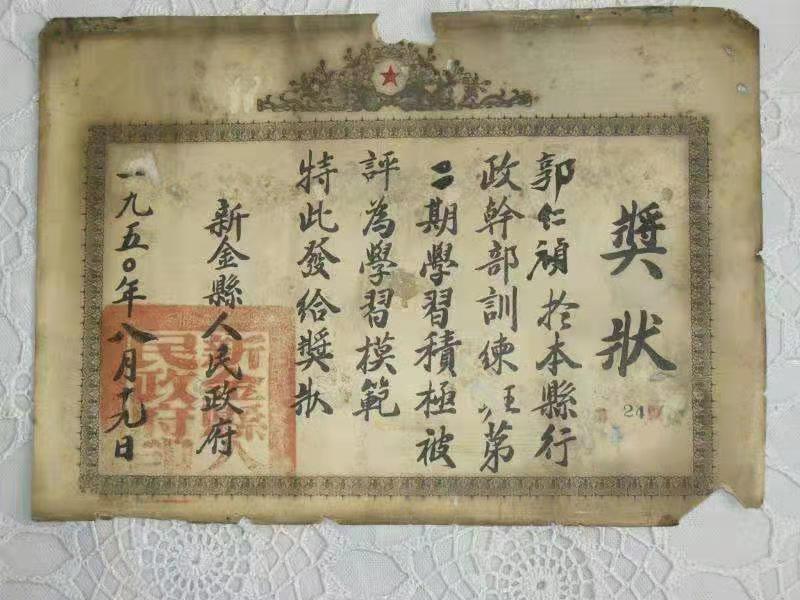 獎狀
郭仁禎於本縣行
政幹部訓練班第
二期學習積極被
評為學習模範
特此發給獎狀
新金縣人民政府
一九五〇年八月十九日
新金縣人
民政府印
24